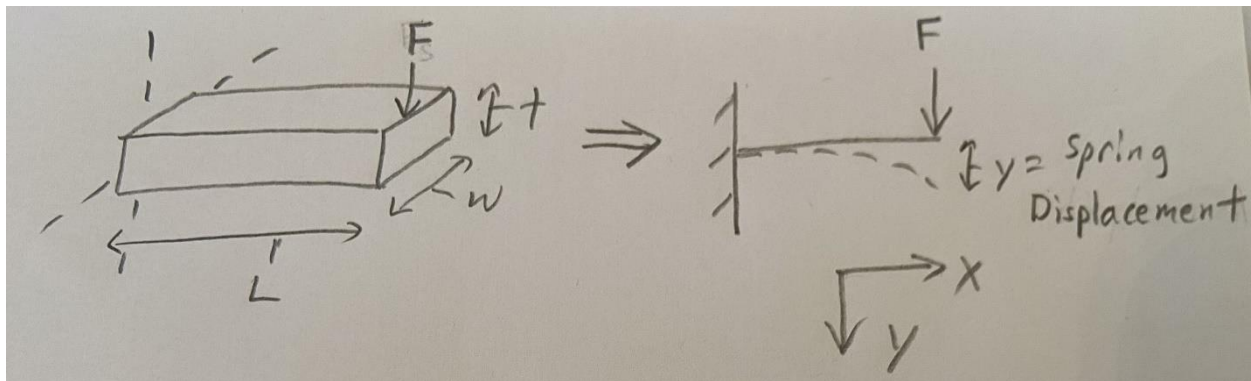 F
t
w
L
F
y = Spring
Displacement
X
y